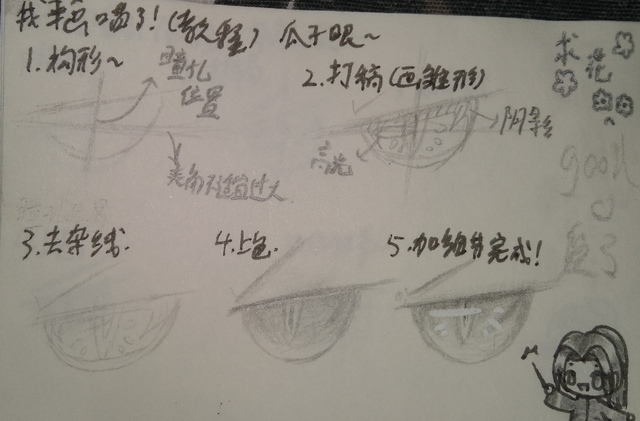 我来画喵了！(教程) 瓜子眼~
1.构形~
瞳孔
位置
夹角不适宜过大
2.打稿(画雏形)
阴影
高光
3.去杂线.
4.上色.
5.加细节完成！
求花~
good